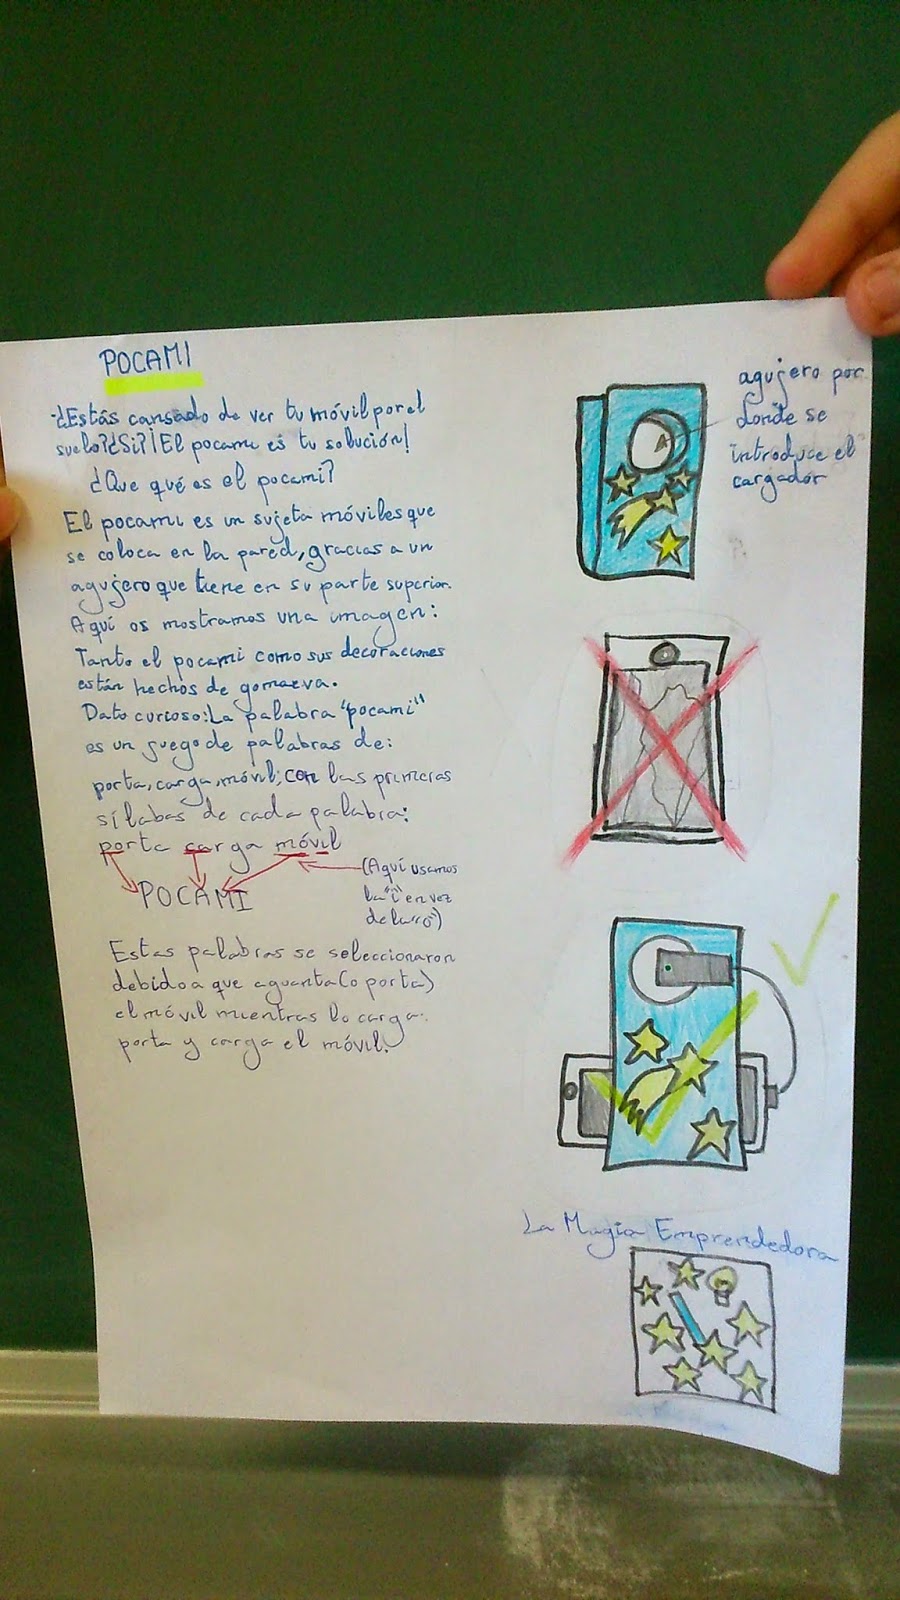 POCAMI
-¿Estás cansado de ver tu móvil por el
suelo?¿Si?¡El pocami es tu solución!
¿Que qué es el pocami?
El pocami es un sujeta móviles que
se coloca en la pared, gracias a un
agujero que tiene en su parte superior.
Aquí os mostramos una imagen:
Tanto el pocami como sus decoraciones
están hechos de gomaeva.
Dato curioso: La palabra "pocami"
es un juego de palabras de:
porta, carga, móvil; con las primeras
sílabas de cada palabra:
porta carga móvil
POCAMI
(Aquí usamos
la "i" en vez
de la "o")
Estas palabras se seleccionaron
debido a que aguanta (o porta)
el móvil mientras lo carga:
porta y carga el móvil.
agujero por
donde se
introduce el
cargador
La Magia Emprendedora